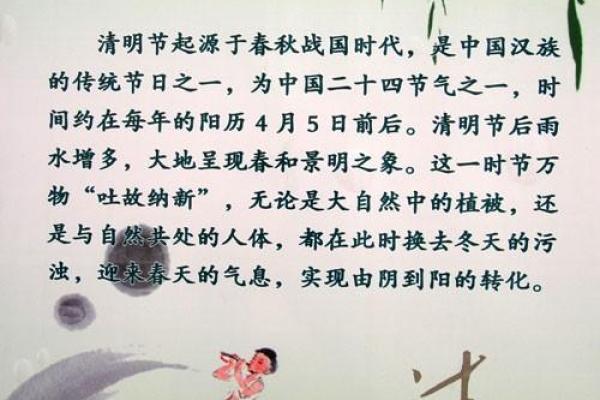 清明节起源于春秋战国时代，是中国汉族
的传统节日之一，为中国二十四节气之一，时
间约在每年的阳历4月5日前后。清明节后雨
水增多，大地呈现春和景明之象。这一时节万
物“吐故纳新”，无论是大自然中的植被，还
是与自然共处的人体，都在此时换去冬天的污
浊，迎来春天的气息，实现由阴到阳的转化。